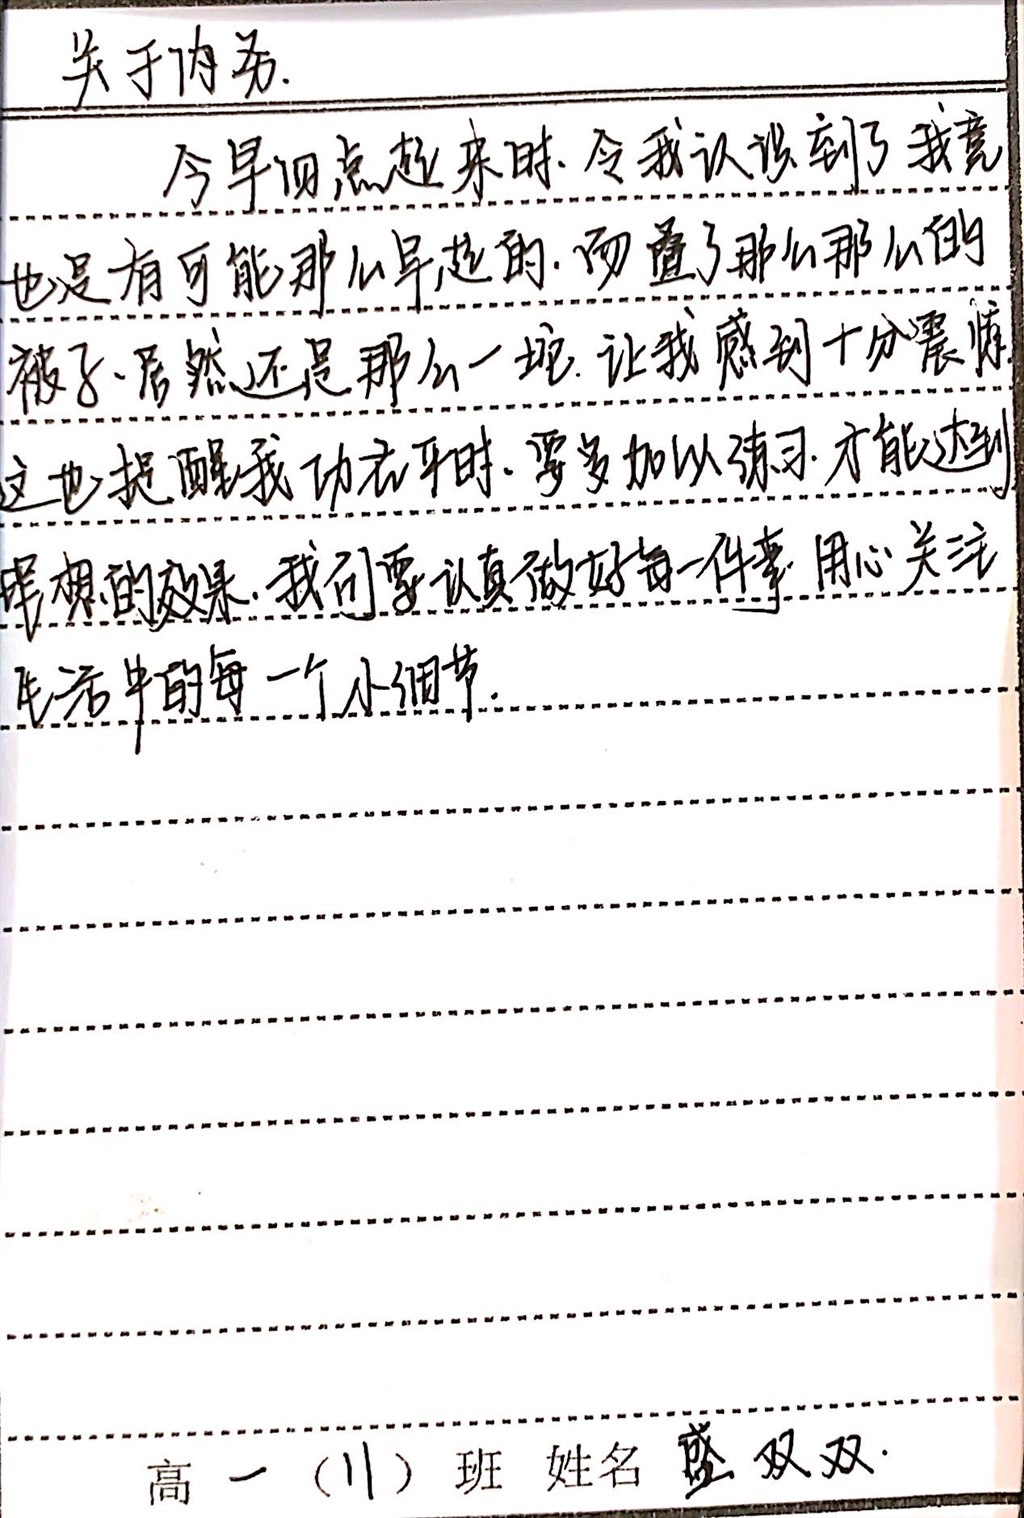 关于内务.
今早四点起来时.令我认识到了我竟
也是有可能那么早起的.而叠了那么那么的
被子.居然还是那么一坨.让我感到十分震惊.
这也提醒我功在平时.要多加以练习.才能达到
理想的效果.我们要认真做好每一件事.用心关注
生活中的每一个小细节.
高一(11)班 姓名 盛双双.